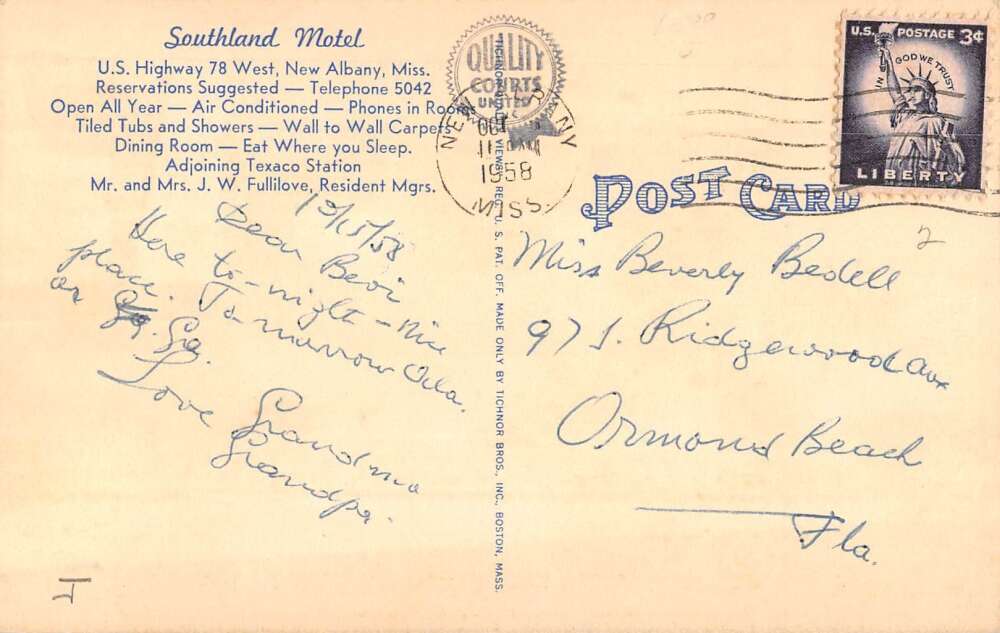 Southland Motel
U.S. Highway 78 West, New Albany, Miss.
Reservations Suggested — Telephone 5042
Open All Year — Air Conditioned — Phones in Rooms
Tiled Tubs and Showers — Wall to Wall Carpets
Dining Room — Eat Where you Sleep.
Adjoining Texaco Station
Mr. and Mrs. J. W. Fullilove, Resident Mgrs.
QUALITY
COURTS
UNITED
NEW ALBANY
OCT
1958
MISS.
U.S. POSTAGE 3¢
IN GOD WE TRUST
LIBERTY
POST CARD
10/15/58
Dear Bevi
Here to-night - nice
place. To-morrow Ala.
or Ga.
Love
Grandma
Grandpa.
Miss Beverly Bedell
97 S. Ridgewood Ave
Ormond Beach
Fla.
2
REG. U. S. PAT. OFF. MADE ONLY BY TICHNOR BROS., INC., BOSTON, MASS.